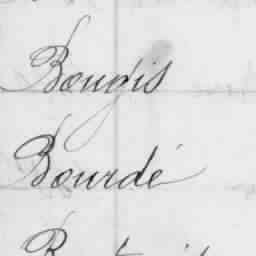 Bougis
Bourdé